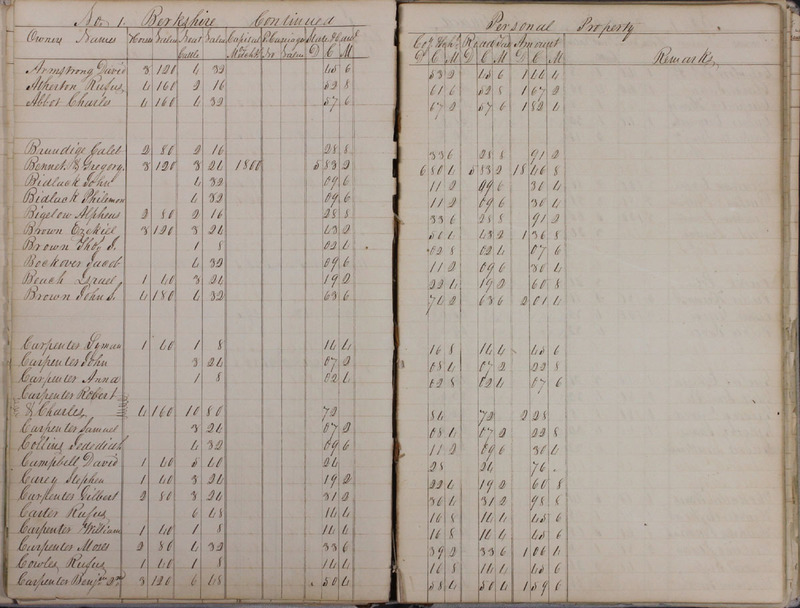 No. 1 Berkshire Continued Personal Property
Owners Names Horses Value Neat Cattle Value Capital Merchdz P. Carriages No Value State & Canl D C M Coy & Tship D C M Road Tax D C M Amount D C M Remarks
Armstrong David 3 120 4 32 45 6 53 2 45 6 1 44 4
Atherton Rufus 4 160 2 16 52 8 61 6 52 8 1 67 2
Abbot Charles 4 160 4 32 57 6 67 2 57 6 1 82 4
Brundige Calet 2 80 2 16 28 8 33 6 28 8 91 2
Bennet & Gregory 3 120 3 24 1800 5 83 2 6 80 4 5 83 2 18 46 8
Bidlack John 4 32 09 6 11 2 09 6 30 4
Bidlack Philemon 4 32 09 6 11 2 09 6 30 4
Bigelow Alpheus 2 80 2 16 28 8 33 6 28 8 91 2
Brown Ezekiel 3 120 3 24 43 2 50 4 43 2 1 36 8
Brown Thos. S. 1 8 02 4 02 8 02 4 07 6
Bockover Jacob 4 32 09 6 11 2 09 6 30 4
Beach Israel 1 40 3 24 19 2 22 4 19 2 60 8
Brown John S. 4 180 4 32 63 6 74 2 63 6 2 01 4
Carpenter Lyman 1 40 1 8 14 4 16 8 14 4 45 6
Carpenter John 3 24 07 2 08 4 07 2 22 8
Carpenter Anna 1 8 02 4 02 8 02 4 07 6
Carpenter Robert
& Charles 4 160 10 80 72 84 72 2 28
Carpenter Samuel 3 24 07 2 08 4 07 2 22 8
Collins Jededich 4 32 09 6 11 2 09 6 30 4
Campbell David 1 40 5 40 24 28 24 76
Carey Stephen 1 40 3 24 19 2 22 4 19 2 60 8
Carpenter Gilbert 2 80 3 24 31 2 36 4 31 2 98 8
Carter Rufus 6 48 14 4 16 8 14 4 45 6
Carpenter William 1 40 1 8 14 4 16 8 14 4 45 6
Carpenter Moses 2 80 4 32 33 6 39 2 33 6 1 06 4
Cowles Rufus 1 40 1 8 14 4 16 8 14 4 45 6
Carpenter Benjn 2nd 3 120 6 48 50 4 58 4 50 4 1 59 6